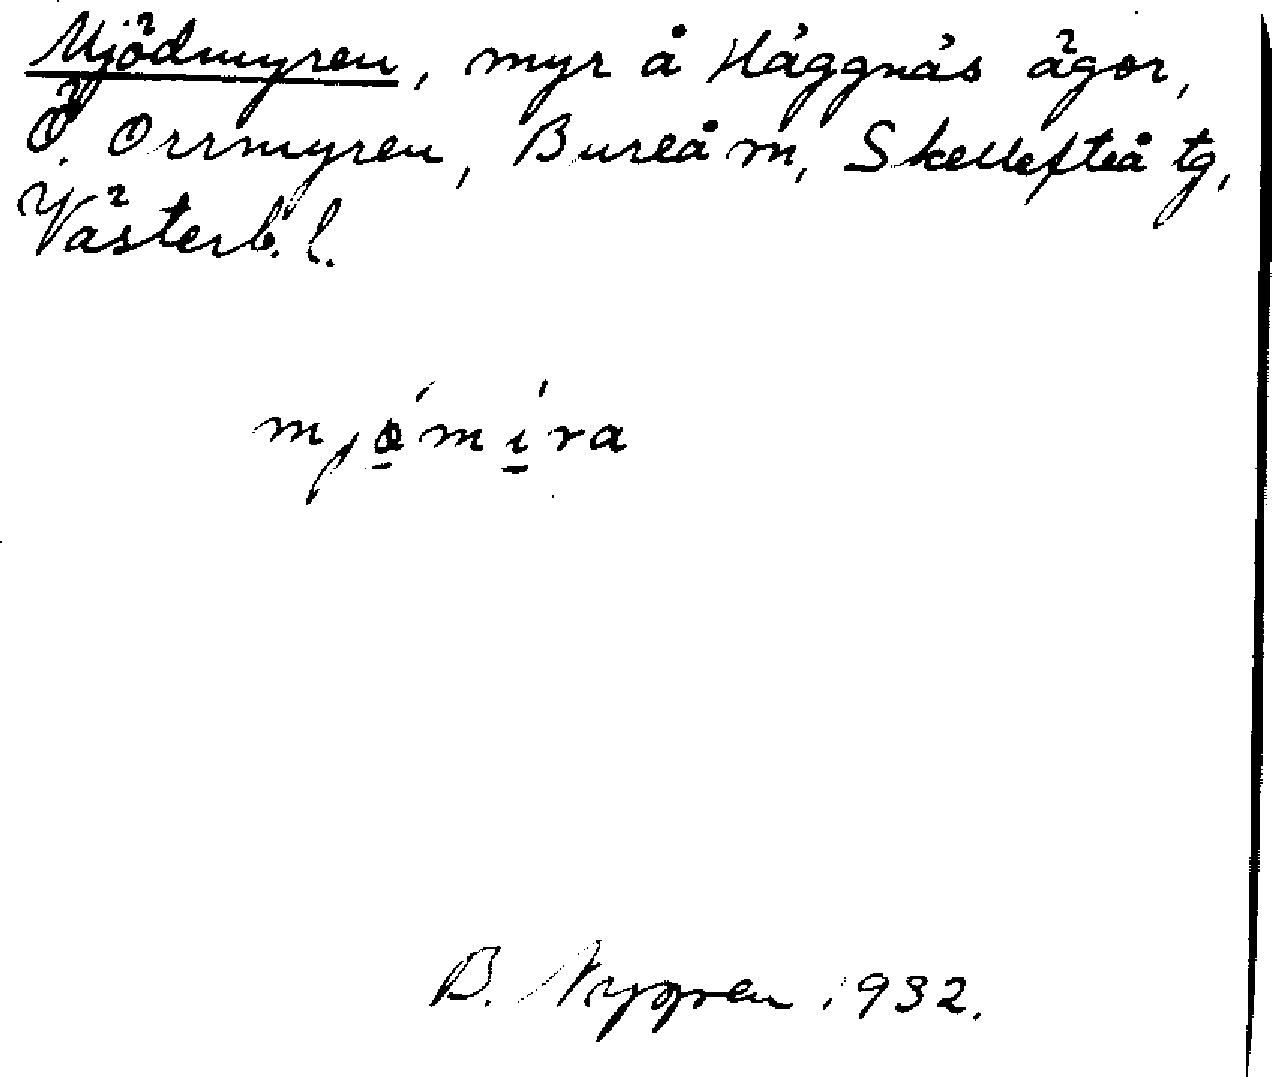 Mjödmyren, myr å Häggnäs ägor,
Ö. Orrmyren, Bureå m, Skellefteå tg,
Västerb. l.
mjǿmíra
B. Nygren 1932.